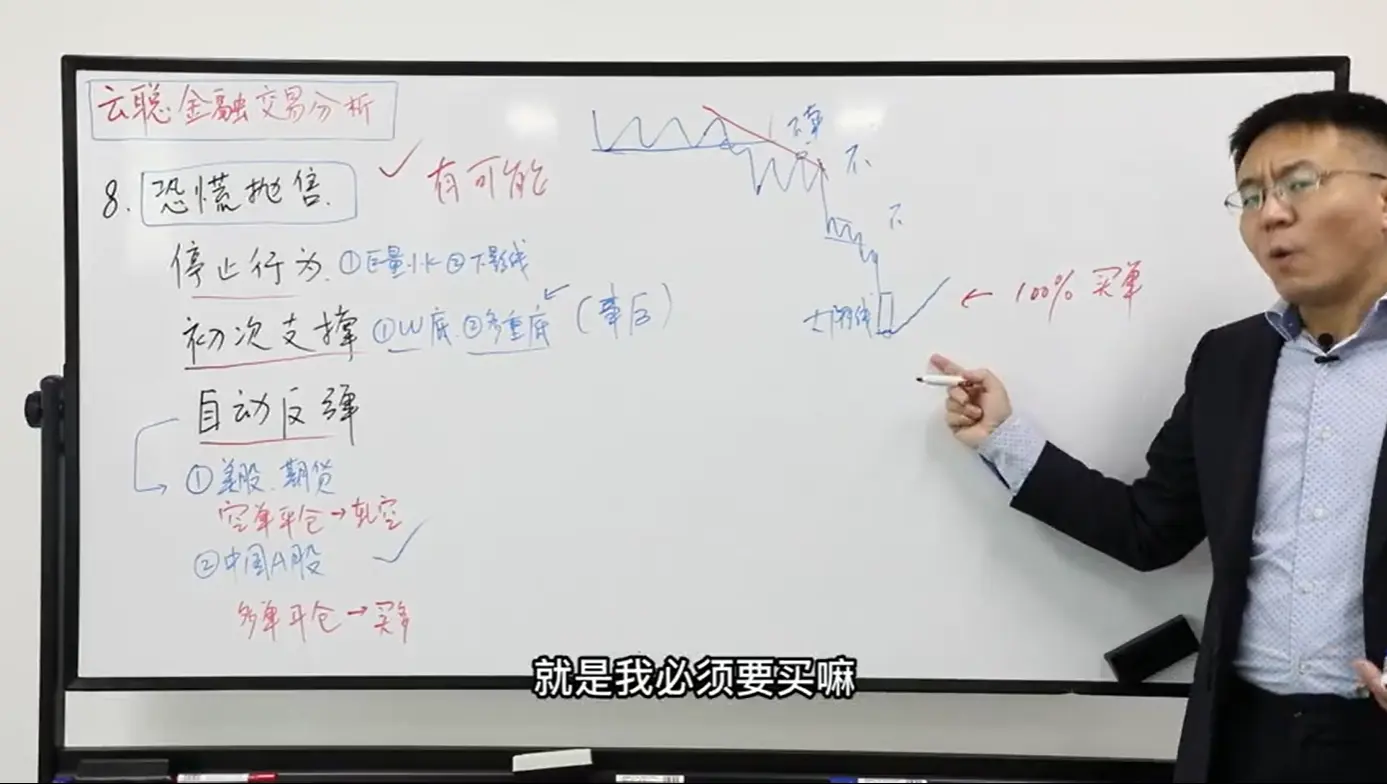 云聪金融交易分析
8. 恐慌抛售. ✓ 有可能
停止行为. ①巨量小K ②下影线
初次支撑 ①W底. ②多重底 (幸存)
自动反弹
①美股. 期货
空单平仓→轧空
②中国A股 ✓
多单平仓→买
不
不
← 100% 买单
就是我必须要买嘛